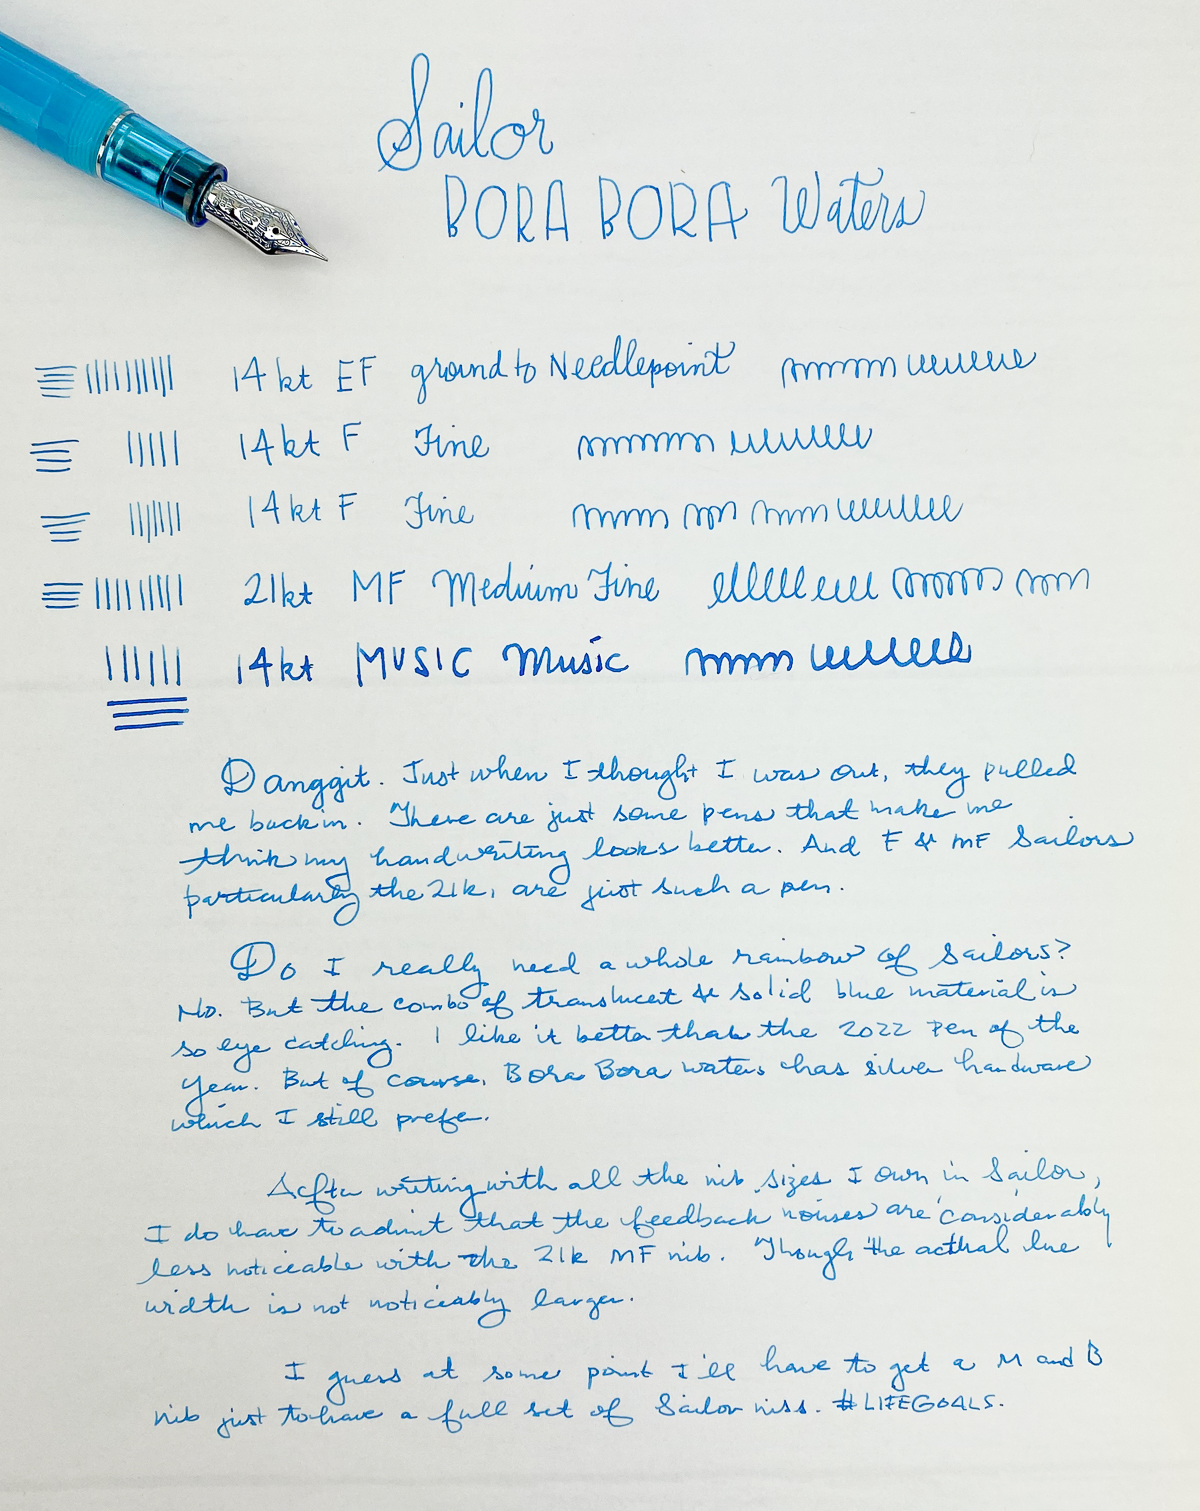 Sailor
BORA BORA Waters
14kt EF ground to Needlepoint
14kt F Fine
14kt F Fine
21kt MF Medium Fine
14kt MUSIC Music
Danggit. Just when I thought I was out, they pulled
me back in. There are just some pens that make me
think my handwriting looks better. And F & MF Sailors
particularly the 21k, are just such a pen.
Do I really need a whole rainbow of Sailors?
No. But the combo of translucet & solid blue material is
so eye catching. I like it better than the 2022 Pen of the
Year. But of course, Bora Bora waters has silver hardware
which I still prefer.
After writing with all the nib sizes I own in Sailor,
I do have to admit that the feedback noises are considerably
less noticeable with the 21k MF nib. Though the acthal line
width is not noticeably larger.
I guess at some point I'll have to get a M and B
nib just to have a full set of Sailor niss. #LIFEGOALS.